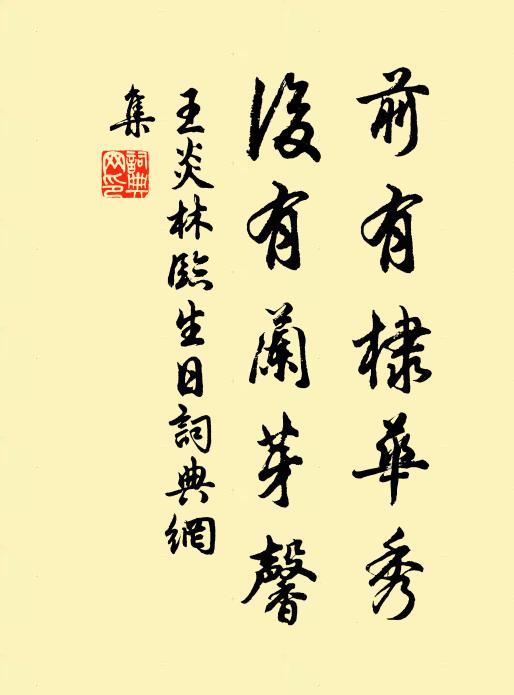 前有棣華秀
後有蘭芽馨
王炎林臨生日詞典網
集
詞典網印